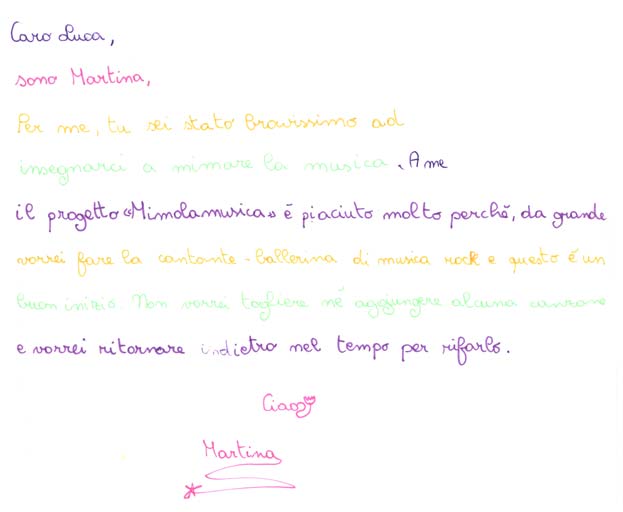 Caro Luca,
sono Martina,
Per me, tu sei stato bravissimo ad
insegnarci a mimare la musica. A me
il progetto «Mimolamusica» è piaciuto molto perché, da grande
vorrei fare la cantante-ballerina di musica rock e questo è un
buon inizio. Non vorrei togliere né aggiungere alcuna canzone
e vorrei ritornare indietro nel tempo per rifarlo.
Ciao
Martina